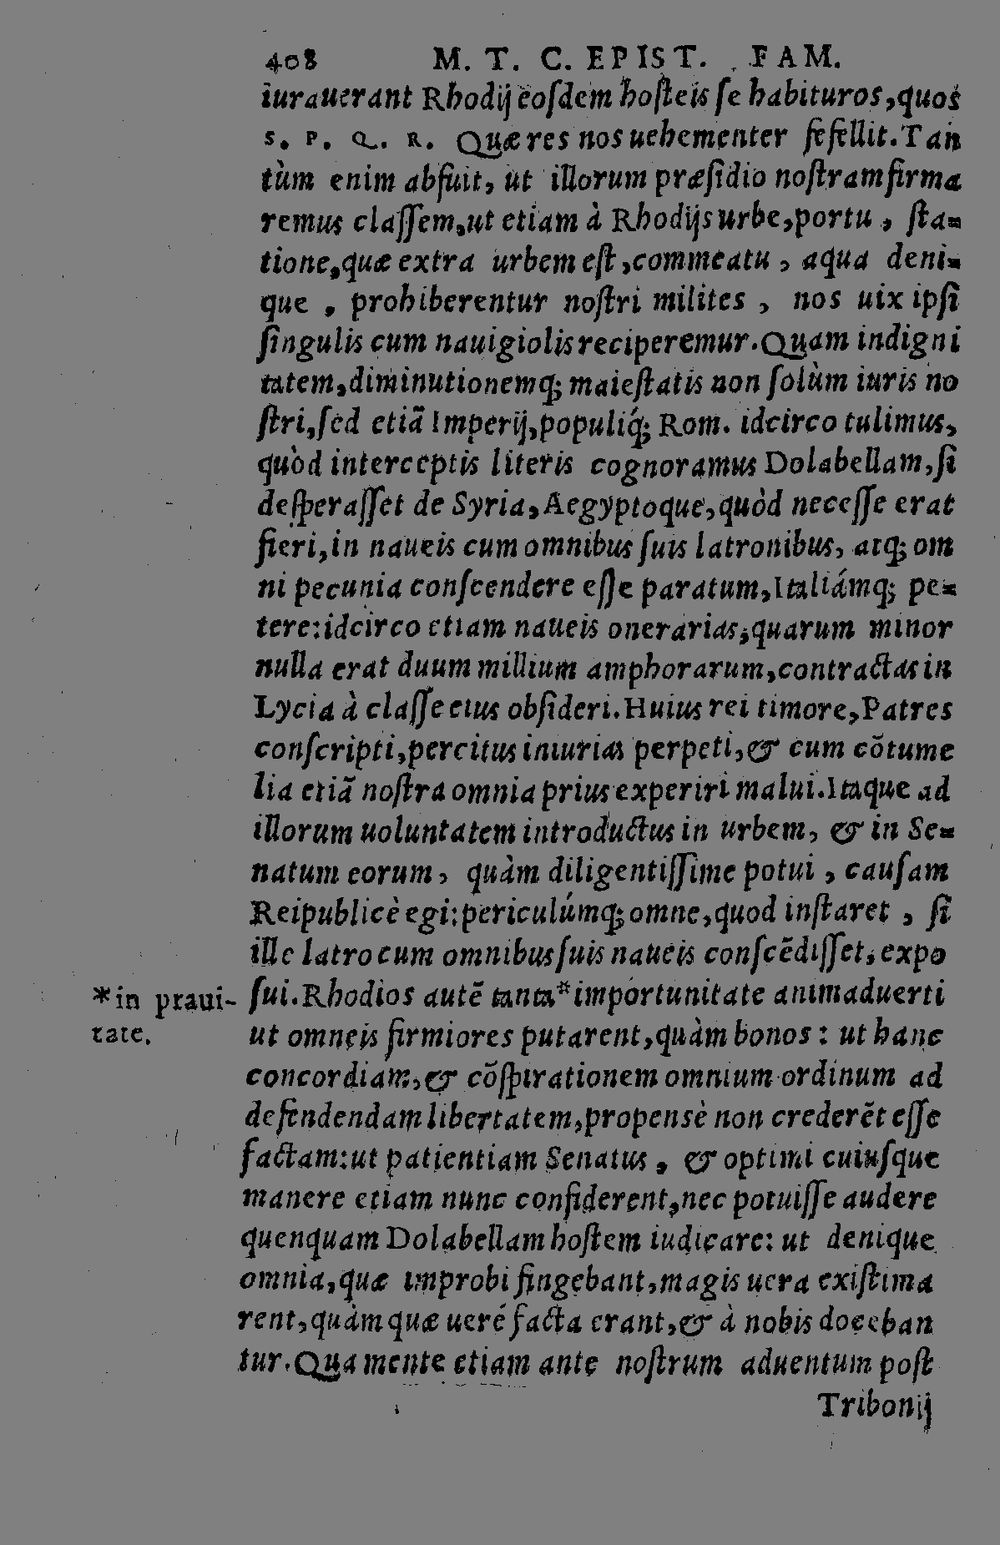 408 M. T. C. EPIST. FAM.
iurauerant Rhodij eosdem hosteis se habituros, quos
S. P. Q. R. Quæ res nos uehementer fefellit. Tan
tùm enim abfuit, ut illorum præsidio nostram firma
remus classem, ut etiam à Rhodijs urbe, portu, sta=
tione, quæ extra urbem est, commeatu, aqua deni=
que, prohiberentur nostri milites, nos uix ipsi
singulis cum nauigiolis reciperemur. Quam indigni
tatem, diminutionemq; maiestatis non solùm iuris no
stri, sed etiã Imperij, populiq́; Rom. idcirco tulimus,
quòd interceptis literis cognoramus Dolabellam, si
desperasset de Syria, Aegyptoque, quòd necesse erat
fieri, in naueis cum omnibus suis latronibus, atq; om
ni pecunia conscendere esse paratum, Italiámq; pe=
tere: idcirco etiam naueis onerarias, quarum minor
nulla erat duum millium amphorarum, contractas in
Lycia à classe eius obsideri. Huius rei timore, Patres
conscripti, percitus iniurias perpeti, & cum cõtume
lia etiã nostra omnia prius experiri malui. Itaque ad
illorum uoluntatem introductus in urbem, & in Se=
natum eorum, quàm diligentissime potui, causam
Reipublicè egi: periculúmq; omne, quod instaret, si
ille latro cum omnibus suis naueis conscẽdisset, expo
sui. Rhodios autẽ tanta* importunitate animaduerti
*in praui-
tate.
ut omneis firmiores putarent, quàm bonos: ut hanc
concordiam, & cõspirationem omnium ordinum ad
defendendam libertatem, propensè non crederẽt esse
factam: ut patientiam Senatus, & optimi cuiusque
manere etiam nunc confiderent, nec potuisse audere
quenquam Dolabellam hostem iudicare: ut denique
omnia, quæ improbi fingebant, magis uera existima
rent, quàm quæ ueré facta erant, & à nobis doceban
tur. Qua mente etiam ante nostrum aduentum post
Tribonij